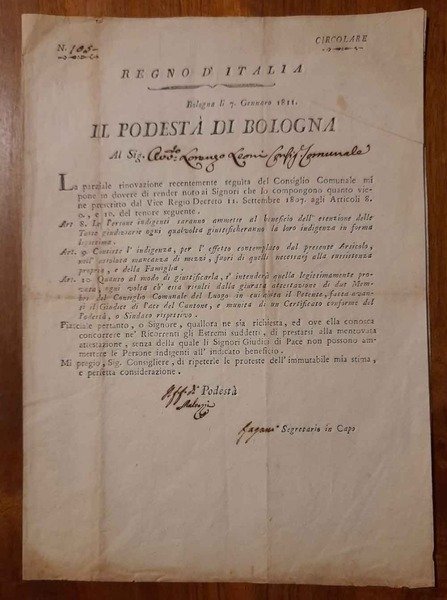 N. 105
CIRCOLARE
REGNO D'ITALIA
Bologna li 7. Gennaro 1811.
IL PODESTÀ DI BOLOGNA
Al Sig. Avv.to Lorenzo Leoni Consig.re Comunale
La parziale rinovazione recentemente seguita del Consiglio Comunale mi
pone in dovere di render noto ai Signori che lo compongono quanto vie-
ne prescritto dal Vice Regio Decreto 11. Settembre 1807. agli Articoli 8.
9., e 10. del tenore seguente.
Art. 8. Le Persone indigenti saranno ammesse al beneficio dell'esenzione delle
Tasse giudiziarie ogni qualvolta giustificheranno la loro indigenza in forma
legittima.
Art. 9. Consiste l'indigenza, per l'effetto contemplato dal presente Articolo,
nell'assoluta mancanza di mezzi, fuori di quelli necessarj alla sussistenza
propria, e della Famiglia.
Art. 10. Quanto al modo di giustificarla, s'intenderà quella legittimamente pro-
vata, ogni volta ch'essa risulti dalla giurata attestazione di due Mem-
bri del Consiglio Comunale del Luogo in cui abita il Petente, fatta avan-
ti il Giudice di Pace del Cantone, e munita di un Certificato conforme del
Podestà, o Sindaco rispettivo.
Piacciale pertanto, o Signore, quallora ne sia richiesta, ed ove ella conosca
concorrere ne' Ricorrenti gli Estremi suddetti, di prestarsi alla mentovata
attestazione, senza della quale li Signori Giudici di Pace non possono am-
mettere le Persone indigenti all'indicato beneficio.
Mi pregio, Sig. Consigliere, di ripeterle le proteste dell'immutabile mia stima,
e perfetta considerazione.
Podestà
Segretario in Capo